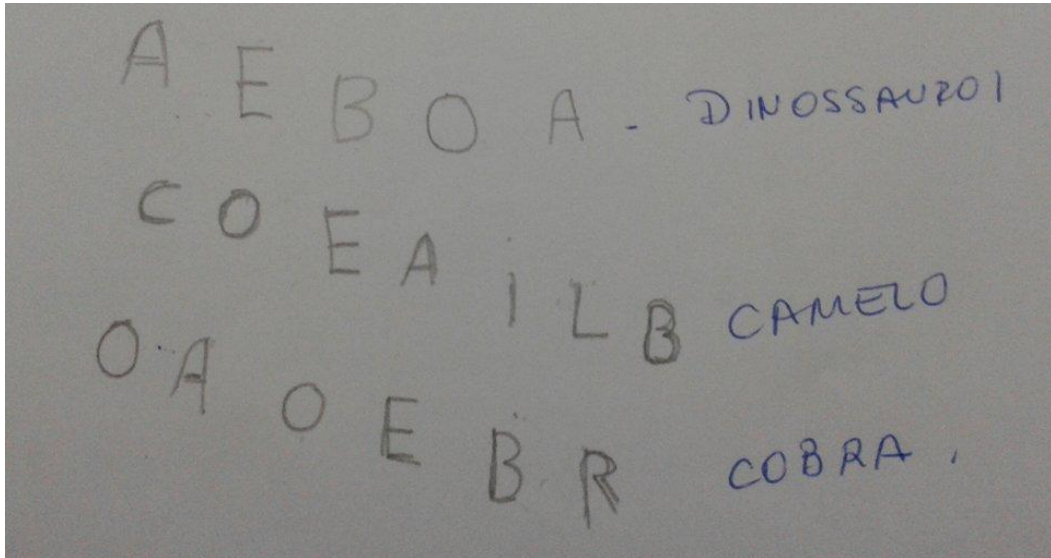 A E B O A - DINOSSAURO 1
C O E A I L B CAMELO
O A O E B R COBRA.